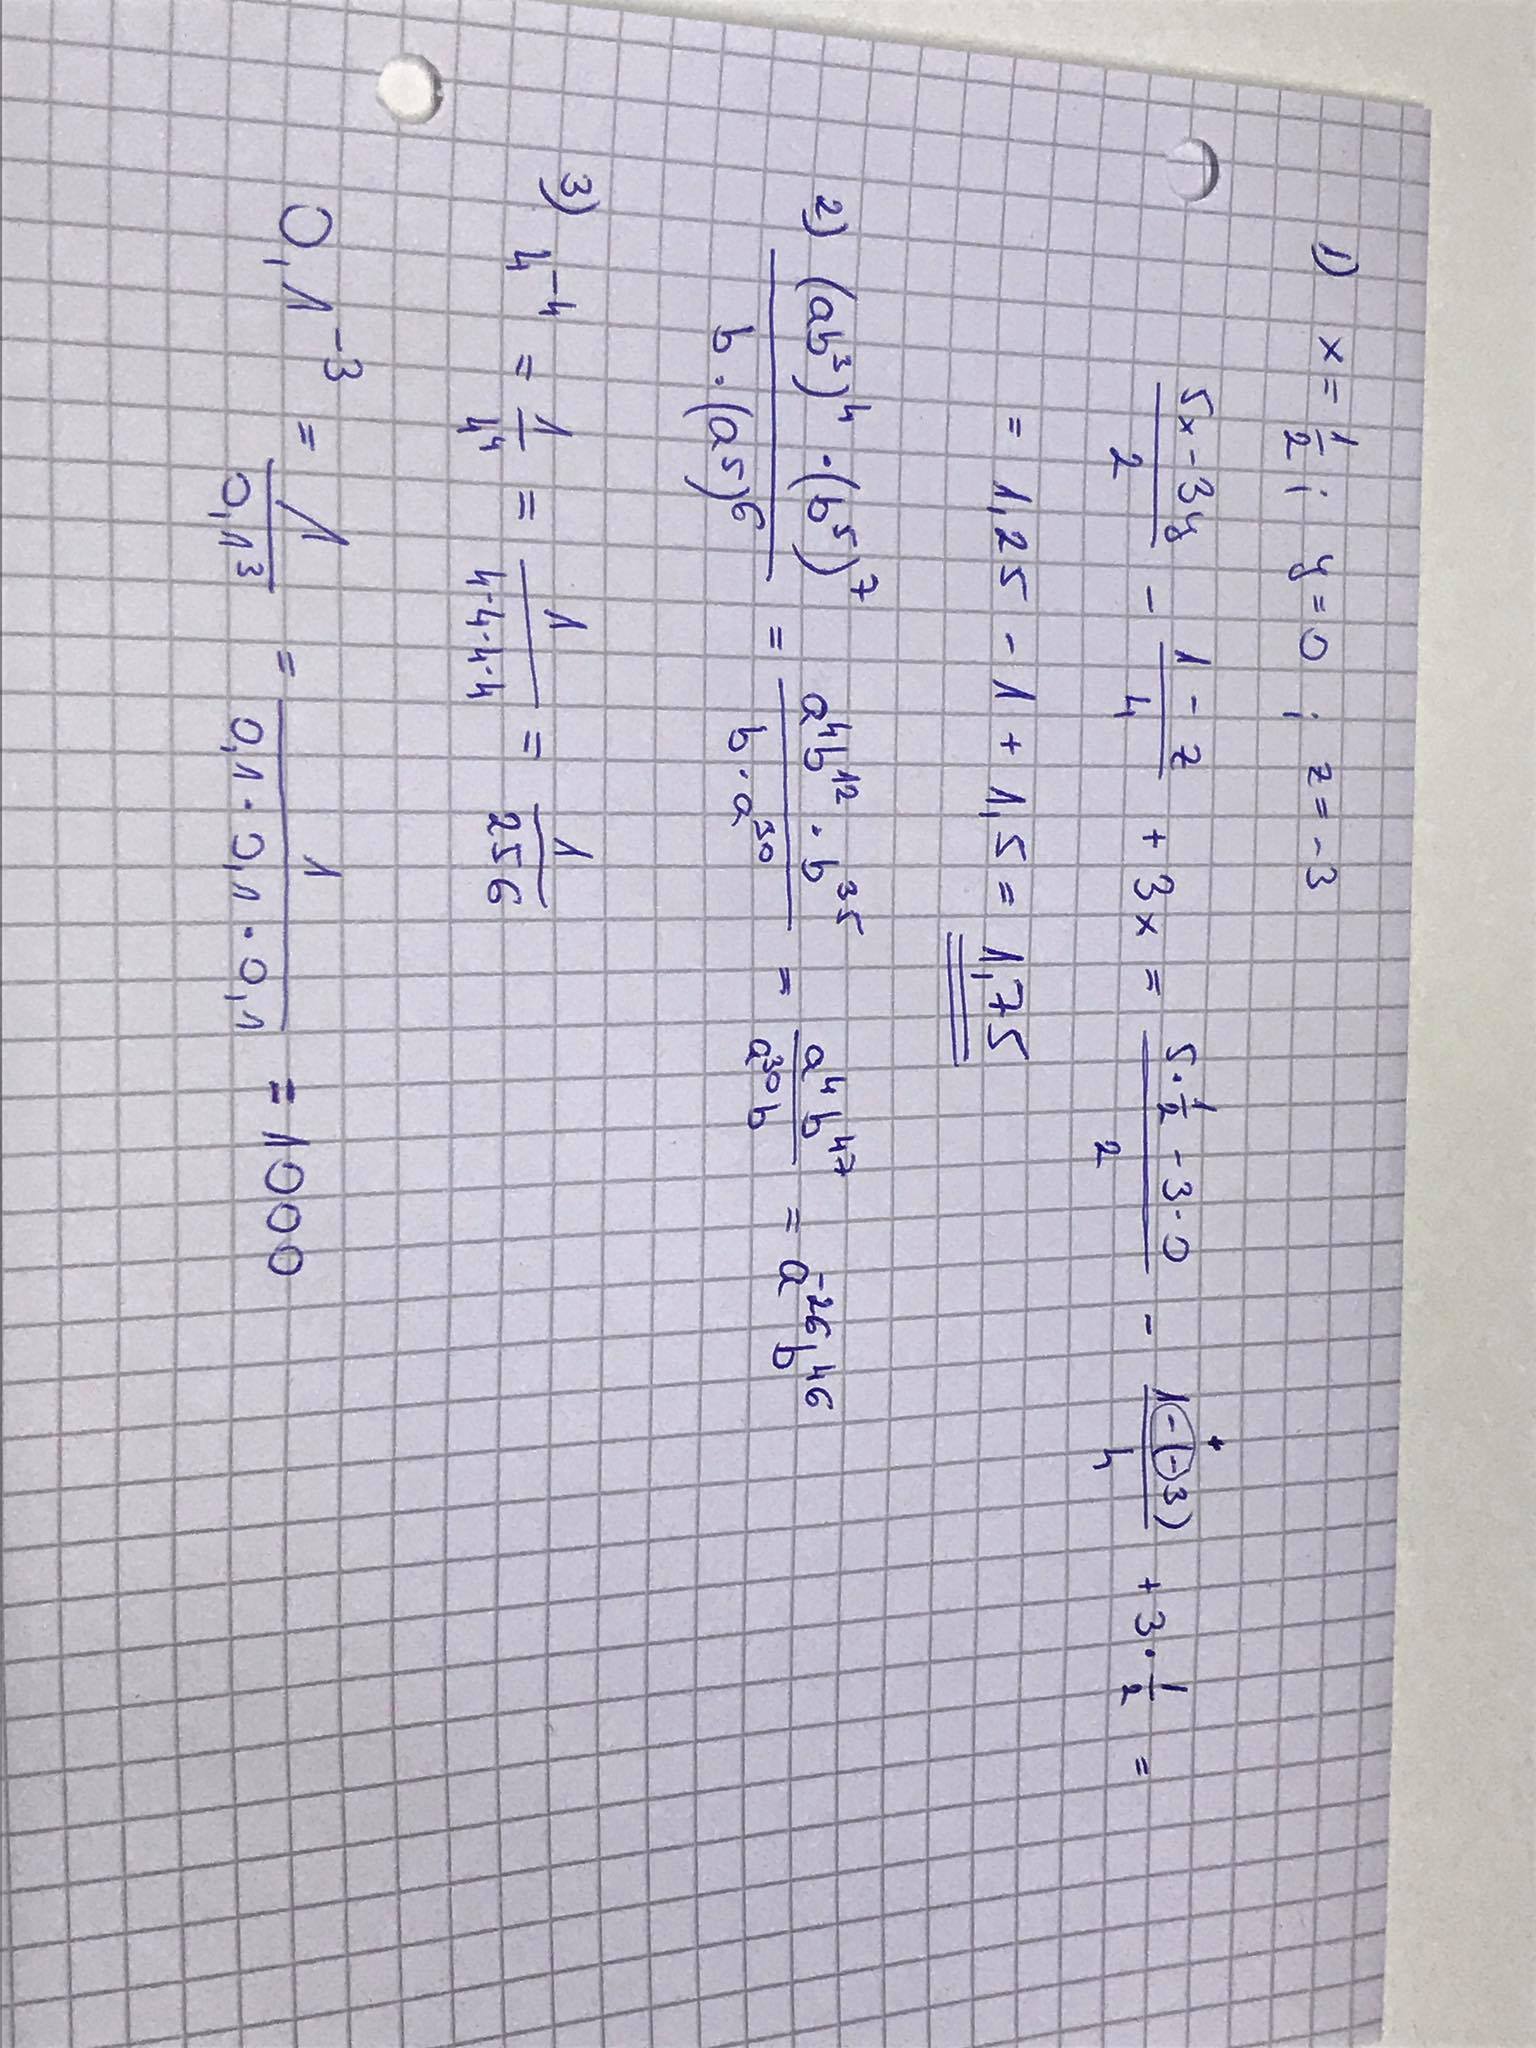 1) x = 1/2 ; y = 0 ; z = -3
(5x - 3y)/2 - (1 - z)/4 + 3x = (5·1/2 - 3·0)/2 - (1-(-3))/4 + 3·1/2 =
+
= 1,25 - 1 + 1,5 = 1,75
2) ((ab³)⁴ · (b⁵)⁷)/(b · (a⁵)⁶) = (a⁴b¹² · b³⁵)/(b · a³⁰) = (a⁴b⁴⁷)/(a³⁰b) = a⁻²⁶b⁴⁶
3) 4⁻⁴ = 1/4⁴ = 1/(4·4·4·4) = 1/256
0,1⁻³ = 1/0,1³ = 1/(0,1 · 0,1 · 0,1) = 1000